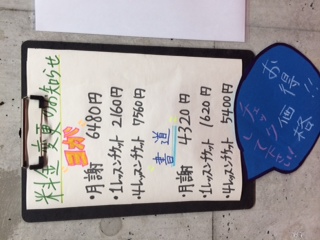 料金変更のお知らせ
ヨガ
・月謝 6480円
・1レッスンチケット 2160円
・4レッスンチケット 7560円
書道
・月謝 4320円
・1レッスンチケット 1620円
・4レッスンチケット 5400円
お得!!
価格
して下さい